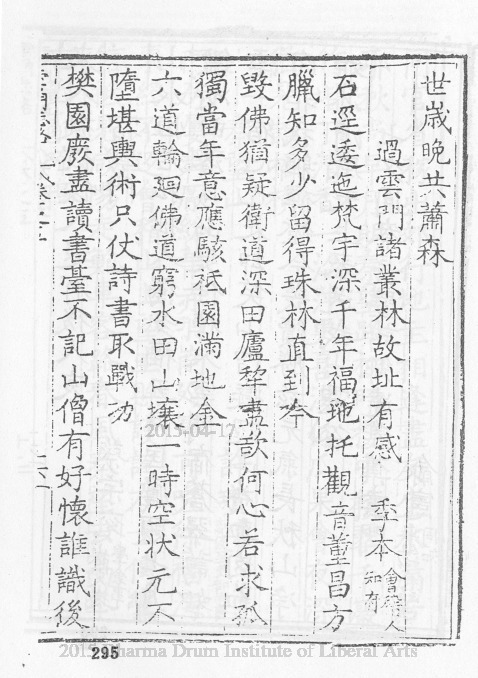 世歲晚共蕭森
過雲門諸叢林故址有感 季本 會稽人知府
石逕逶迤梵宇深千年福地托觀音董昌方
臘知多少留得珠林直到吟
毀佛猶疑衛道深田廬犂盡欲何心若求孤
獨當年意應駭祇園滿地金
六道輪廻佛道窮水田山壤一時空狀元不
墮堪輿術只仗詩書取戰功
樊園廢盡讀書臺不記山僧有好懷誰識後
2013-04-17
295
Dharma Drum Institute of Liberal Arts